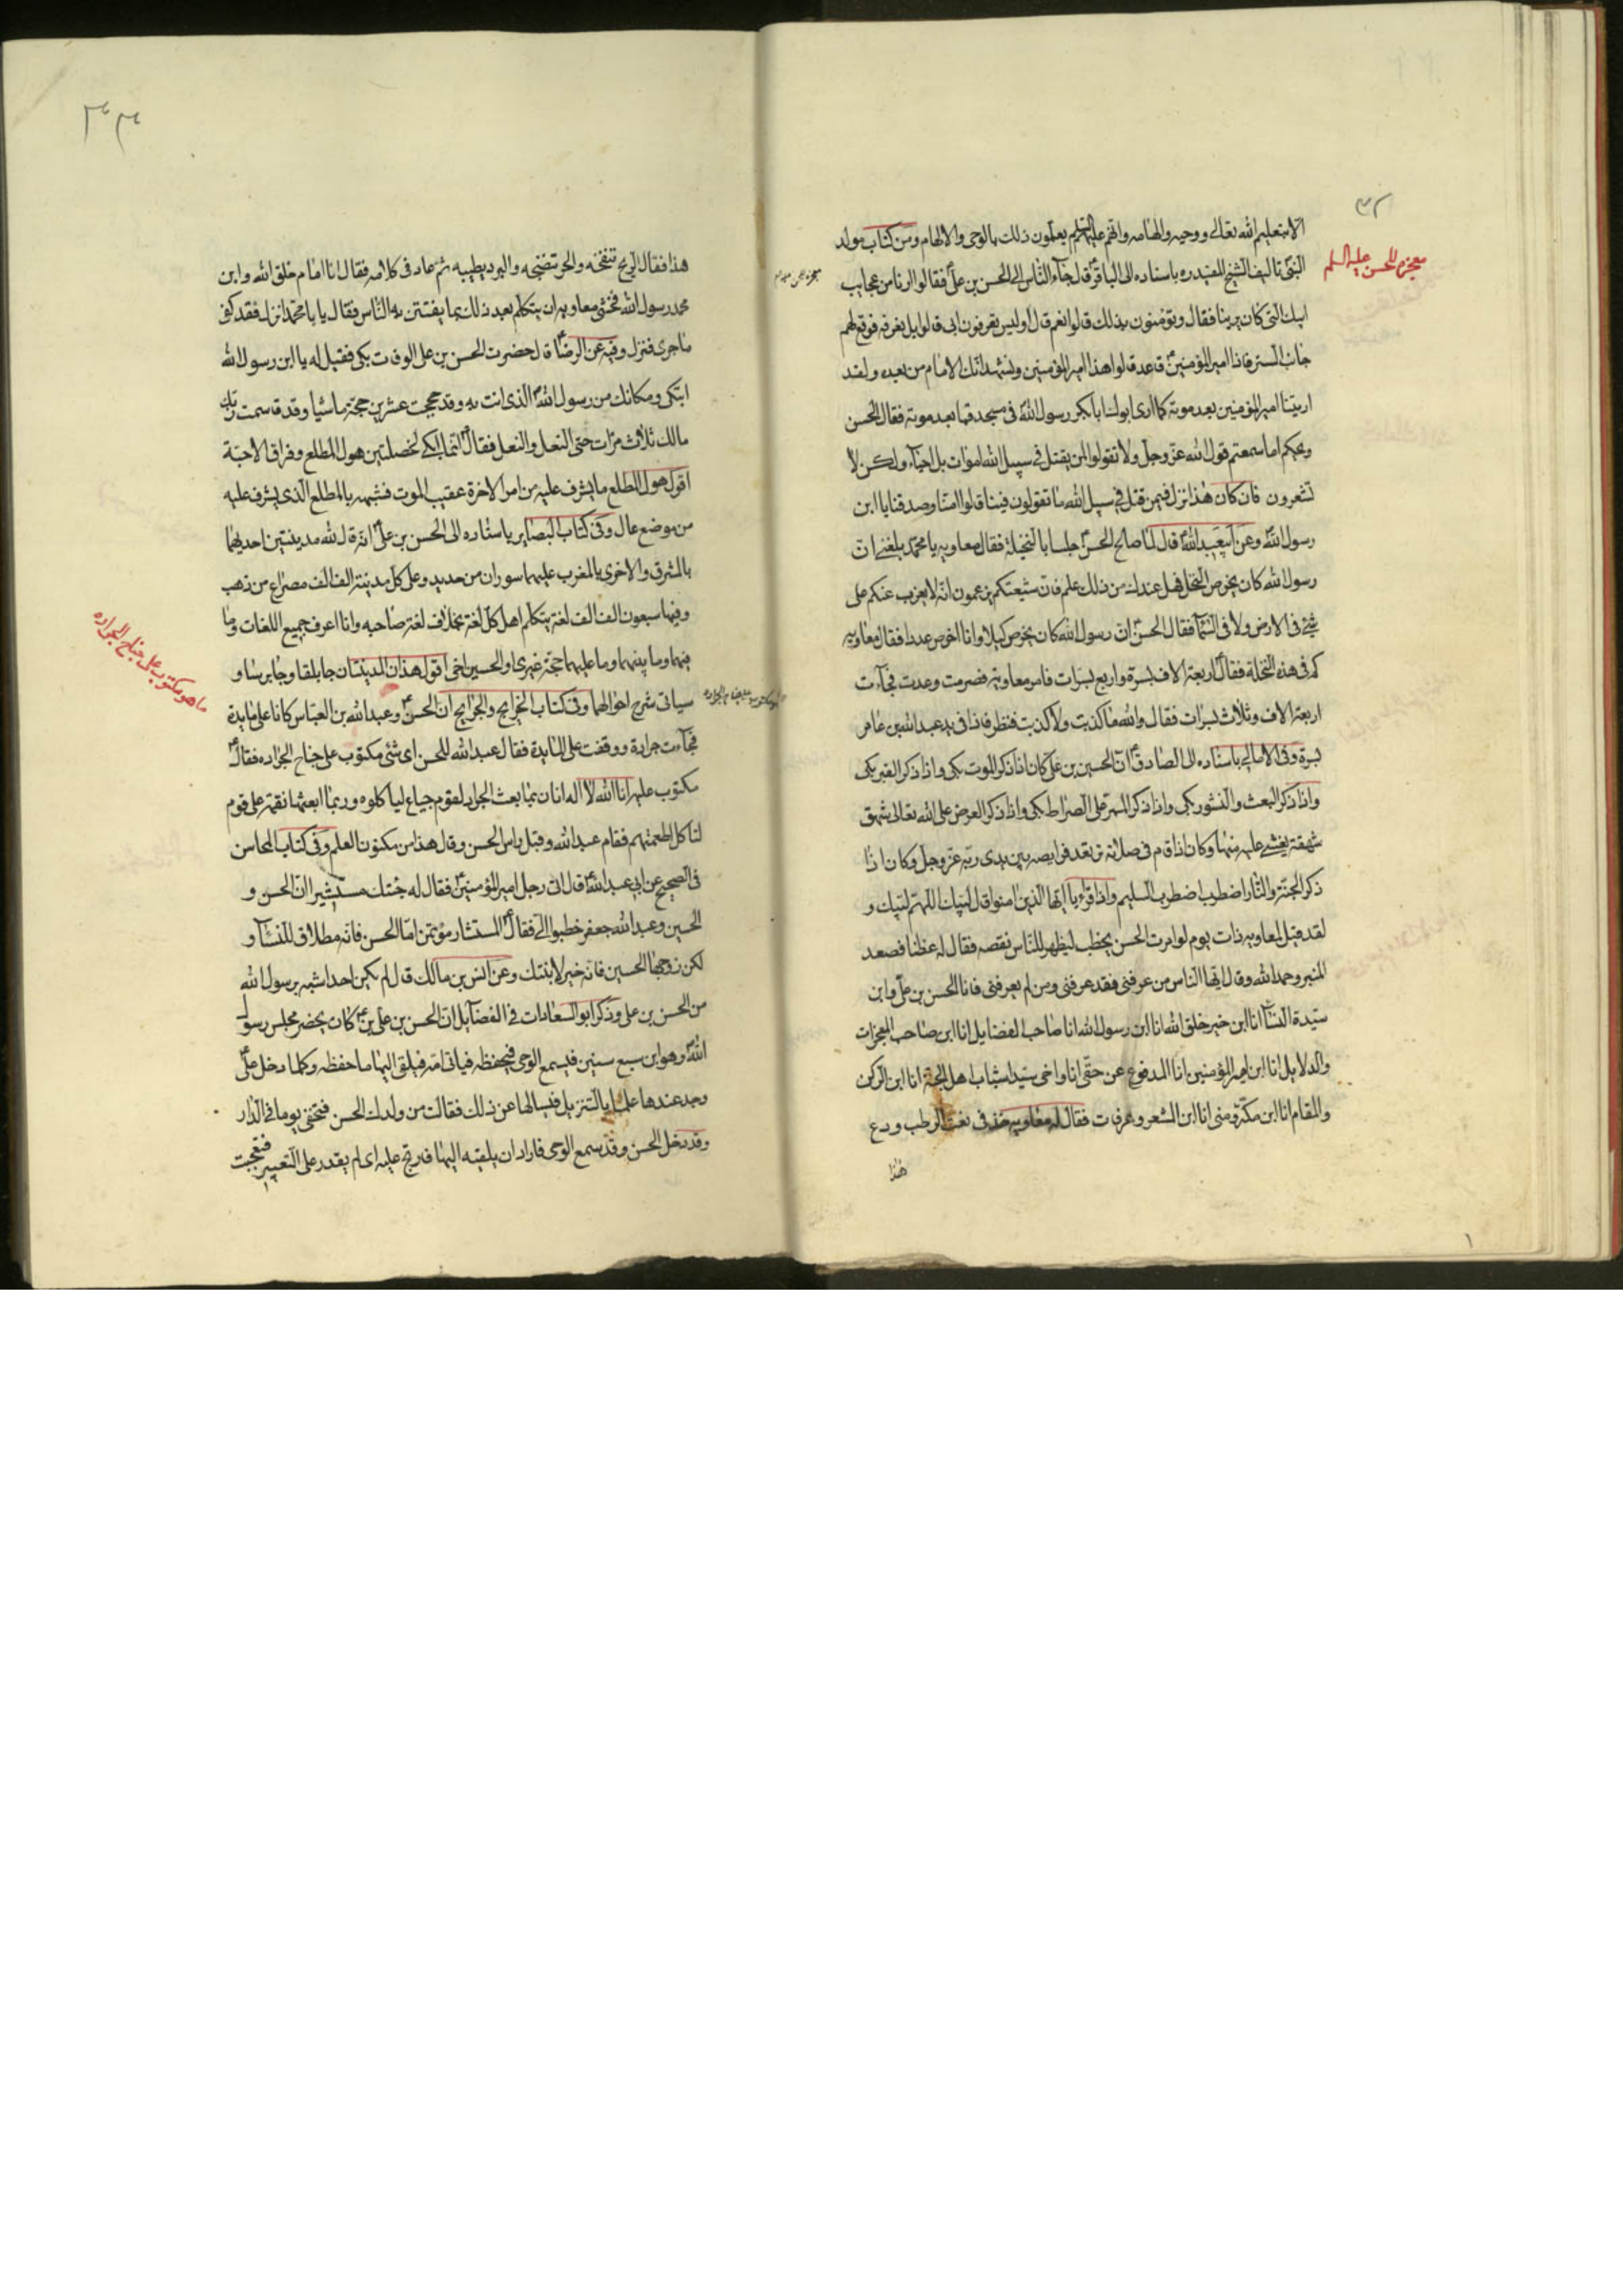 ٣٢
الا بتعليم الله تعالى ووحيه والهامه وانهم عليهم السلم يعلمون ذلك بالوحى والالهام ومن كتاب مولد
معجزه للحسن عليه السلم
النبىّ تاليف الشيخ المفيد ره باسناده الى الباقرؑ قال جآء الناس الى الحسن بن علىؑ فقالوا ارنا من عجايب
ابيك التى كان يرينا فقال وتؤمنون بذلك قالوا نعم قال اوليس تعرفون ابى قالوا بل نعرفه فرفع لهم
جانب الستر فاذا امير المؤمنينؑ قاعد قالوا هذا امير المؤمنين ونشهد انك الامام من بعده ولقد
اريتنا امير المؤمنين بعد موته كما ارى ابوك ابا بكر رسول الله فى مسجد قبا بعد موته فقال الحسن
ويحكم اما سمعتم قول الله عزّ وجل ولا تقولوا لمن يقتل فى سبيل الله اموات بل احيآء ولكن لا
تشعرون فان كان هذا نزل فيمن قتل فى سبيل الله ما تقولون فينا قالوا امنا وصدقنا يا ابن
رسول الله وعن ابيعبد اللهؑ قال لما صالح الحسنؑ جلسا بالنخيلة فقال معاويه يا محمد بلغنى ان
رسول الله كان يخرص النخل فهل عندك من ذلك علم فان شيعتكم يزعمون انه لا يعزب عنكم على
شئ فى الارض ولا فى السمآ فقال الحسنؑ ان رسول الله كان يخرص كيلا وانا اخرص عددا فقال معاويه
كم فى هذه النخلة فقالؑ اربعة الاف بسرة واربع بسرات فامر معاويه فصرمت وعدت فجآءت
اربعة الاف وثلاث بسرات فقال والله ما كذبت ولا كذبت فنظر فاذا فى يد عبد الله بن عامر
بسرة وفى الامالى باسناده الى الصادقؑ ان الحسين بن علىؑ كان اذا ذكر الموت بكى واذا ذكر القبر بكى
واذا ذكر البعث والنشور بكى واذا ذكر الممر على الصراط بكى واذا ذكر العرض على الله تعالى شهق
شهقة يغشى عليه منها وكان اذا قام فى صلاته ترتعد فرايصه بين يدى ربه عز وجل وكان اذا
ذكر الجنة والنار اضطرب اضطرب السليم واذا قرء يا ايها الذين امنوا قال لبيك اللهم لبيك و
لقد قيل لمعاويه ذات يوم لو امرت الحسن يخطب ليظهر للناس نقصه فقال له عظنا فصعد
المنبر وحمد الله وقال ايها الناس من عرفنى فقد عرفنى ومن لم يعرفنى فانا الحسن بن علىؑ وابن
سيّدة النسآء انا ابن خير خلق الله انا ابن رسول الله انا صاحب الفضايل انا ابن صاحب المعجزات
والدلايل انا ابن امير المؤمنين انا المدفوع عن حقى انا واخى سيدا شباب اهل الجنة انا ابن الركن
والمقام انا ابن مكّة ومنى انا ابن المشعر وعرفات فقال له معاويه خذ فى نعت الرطب ودع
هذا
هذا فقال الريح تنفخه والحر تنضجه والبرد يطيبه ثم عاد فى كلامه فقال انا امام خلق الله وابن
محمد رسول الله فخشى معاويه ان يتكلم بعد ذلك بما يفتتن به الناس فقال يا با محمد انزل فقد كفى
ما جرى فنزل وفيه عن الرضاؑ قال حضرت الحسن بن على الوفات بكى فقيل له يا ابن رسول الله
اتبكى ومكانك من رسول الله الذى انت به وقد حججت عشرين حجة ماشيا وقد قاسمت ربّك
مالك ثلاث مرّات حتى النعل والنعل فقالؑ انما ابكى لخصلتين هول المطلع وفراق الاحبّة
اقول هول المطلع ما يشرف عليه من امر الاخرة عقيب الموت فشبهه بالمطلع الذى يشرف عليه
من موضع عال وفى كتاب البصاير باسناده الى الحسن بن علىؑ انه قال لله مدينتين احديهما
بالمشرق والاخرى بالمغرب عليهما سوران من حديد وعلى كل مدينة الف الف مصراع من ذهب
وفيها سبعون الف الف لغة يتكلم اهل كل لغة بخلاف لغة صاحبه وانا اعرف جميع اللغات وما
فيهما وما بينهما وما عليهما حجة غيرى والحسين اخى اقول هذان المدينتان جابلقا وجابرسا و
ما هو مكتوب على جناح الجراده
سياتى شرح احوالهما وفى كتاب الخرايج والجرايح ان الحسنؑ وعبد الله بن العباس كانا على مايدة
فجآءت جرادة ووقفت على المايدة فقال عبد الله للحسن اى شئ مكتوب على جناح الجراده فقالؑ
مكتوب عليه انا الله لا اله الا انا ربما بعث الجراد لقوم جياع لياكلوه وربما ابعثها نقمة على قوم
لتاكل اطعمتهم فقام عبد الله وقبل راس الحسن وقال هذا من مكنون العلم وفى كتاب المحاسن
فى الصحيح عن ابى عبد اللهؑ قال اتى رجل امير المؤمنينؑ فقال له جئتك مستشيرا ان الحسن و
الحسين وعبد الله جعفر خطبوا الىّ فقالؑ المستشار مؤتمن اما الحسن فانه مطلاق للنسآء و
لكن زوجها الحسين فانه خير لابنتك وعن انس بن مالك قال لم يكن احد اشبه برسول الله
من الحسن بن على وذكر ابو السعادات فى الفضآيل ان الحسن بن علىؑ كان يحضر مجلس رسول
الله وهو ابن سبع سنين فيسمع الوحى فيحفظه فياتى امّه فيلقى اليها ما حفظه وكلما دخل علىؑ
وجد عندها علما بالتنزيل فيسالها عن ذلك فقالت من ولدك الحسن فتخفى يوما فى الدار
وقد دخل الحسن وقد سمع الوحى فاراد ان يلقيه اليها فارتج عليه اى لم يقدر على التعبير فعجبت